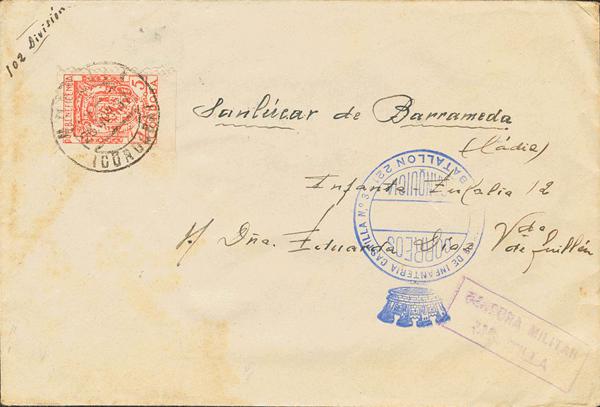 102 División
BENEFICENCIA
5
CORDOBA
Sanlúcar de Barrameda
(Cádiz)
Infanta Eulalia 12
Dña. Eduarda Vda
de Guillén
DE INFANTERIA CASTILLA N.º 3
BATALLON 22
FRANQUICIA
CORREOS
CENSURA MILITAR